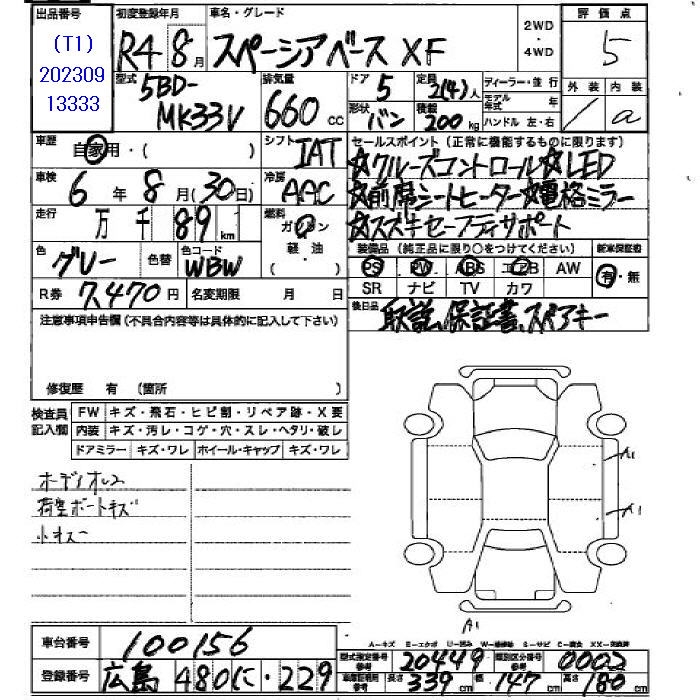 出品番号 初度登録年月 車名・グレード 2WD・4WD 評価点
(T1)
202309
13333
R4 8月 スペーシアベース XF 5
型式 排気量 ドア 定員 ディーラー・並行 外装 内装
5BD-
MK33V 660cc 5 2(4)人 モデル年式 年 / a
形状 バン 積載 200kg ハンドル 左・右
車歴 自家用・( ) シフト IAT セールスポイント(正常に機能するものに限ります)
☆クルーズコントロール☆LED
車検 6年8月(30日) 冷房 AAC ☆前席シートヒーター☆電格ミラー
走行 万千89km 燃料 ガソリン ☆スズキセーフティサポート
軽・油
( )
色 グレー 色替 色コード WBW 装備品(純正品に限り○をつけてください) 新車保証書
PS PW ABS エアB AW 有・無
SR ナビ TV カワ
R券 7,470円 名変期限 月 日
後日品 取説、保証書、スペアキー
注意事項申告欄(不具合内容等は具体的に記入して下さい)
修復歴 有 (箇所 )
検査員記入欄 FW キズ・飛石・ヒビ割・リペア跡・X要
内装 キズ・汚レ・コゲ・穴・スレ・ヘタリ・破レ
ドアミラー キズ・ワレ ホイール・キャップ キズ・ワレ
ボディオレス
荷室ボードキズ
小オスー
A1
A1
A1
A-キズ E-エクボ U-凹み W-補修跡 S-サビ C-腐食 XX-交換済
車台番号 100156
型式指定番号 参考 20449 類別区分番号 参考 0002
登録番号 広島 480に・229
車庫証明用 参考 長さ 339cm 幅 147cm 高さ 180cm